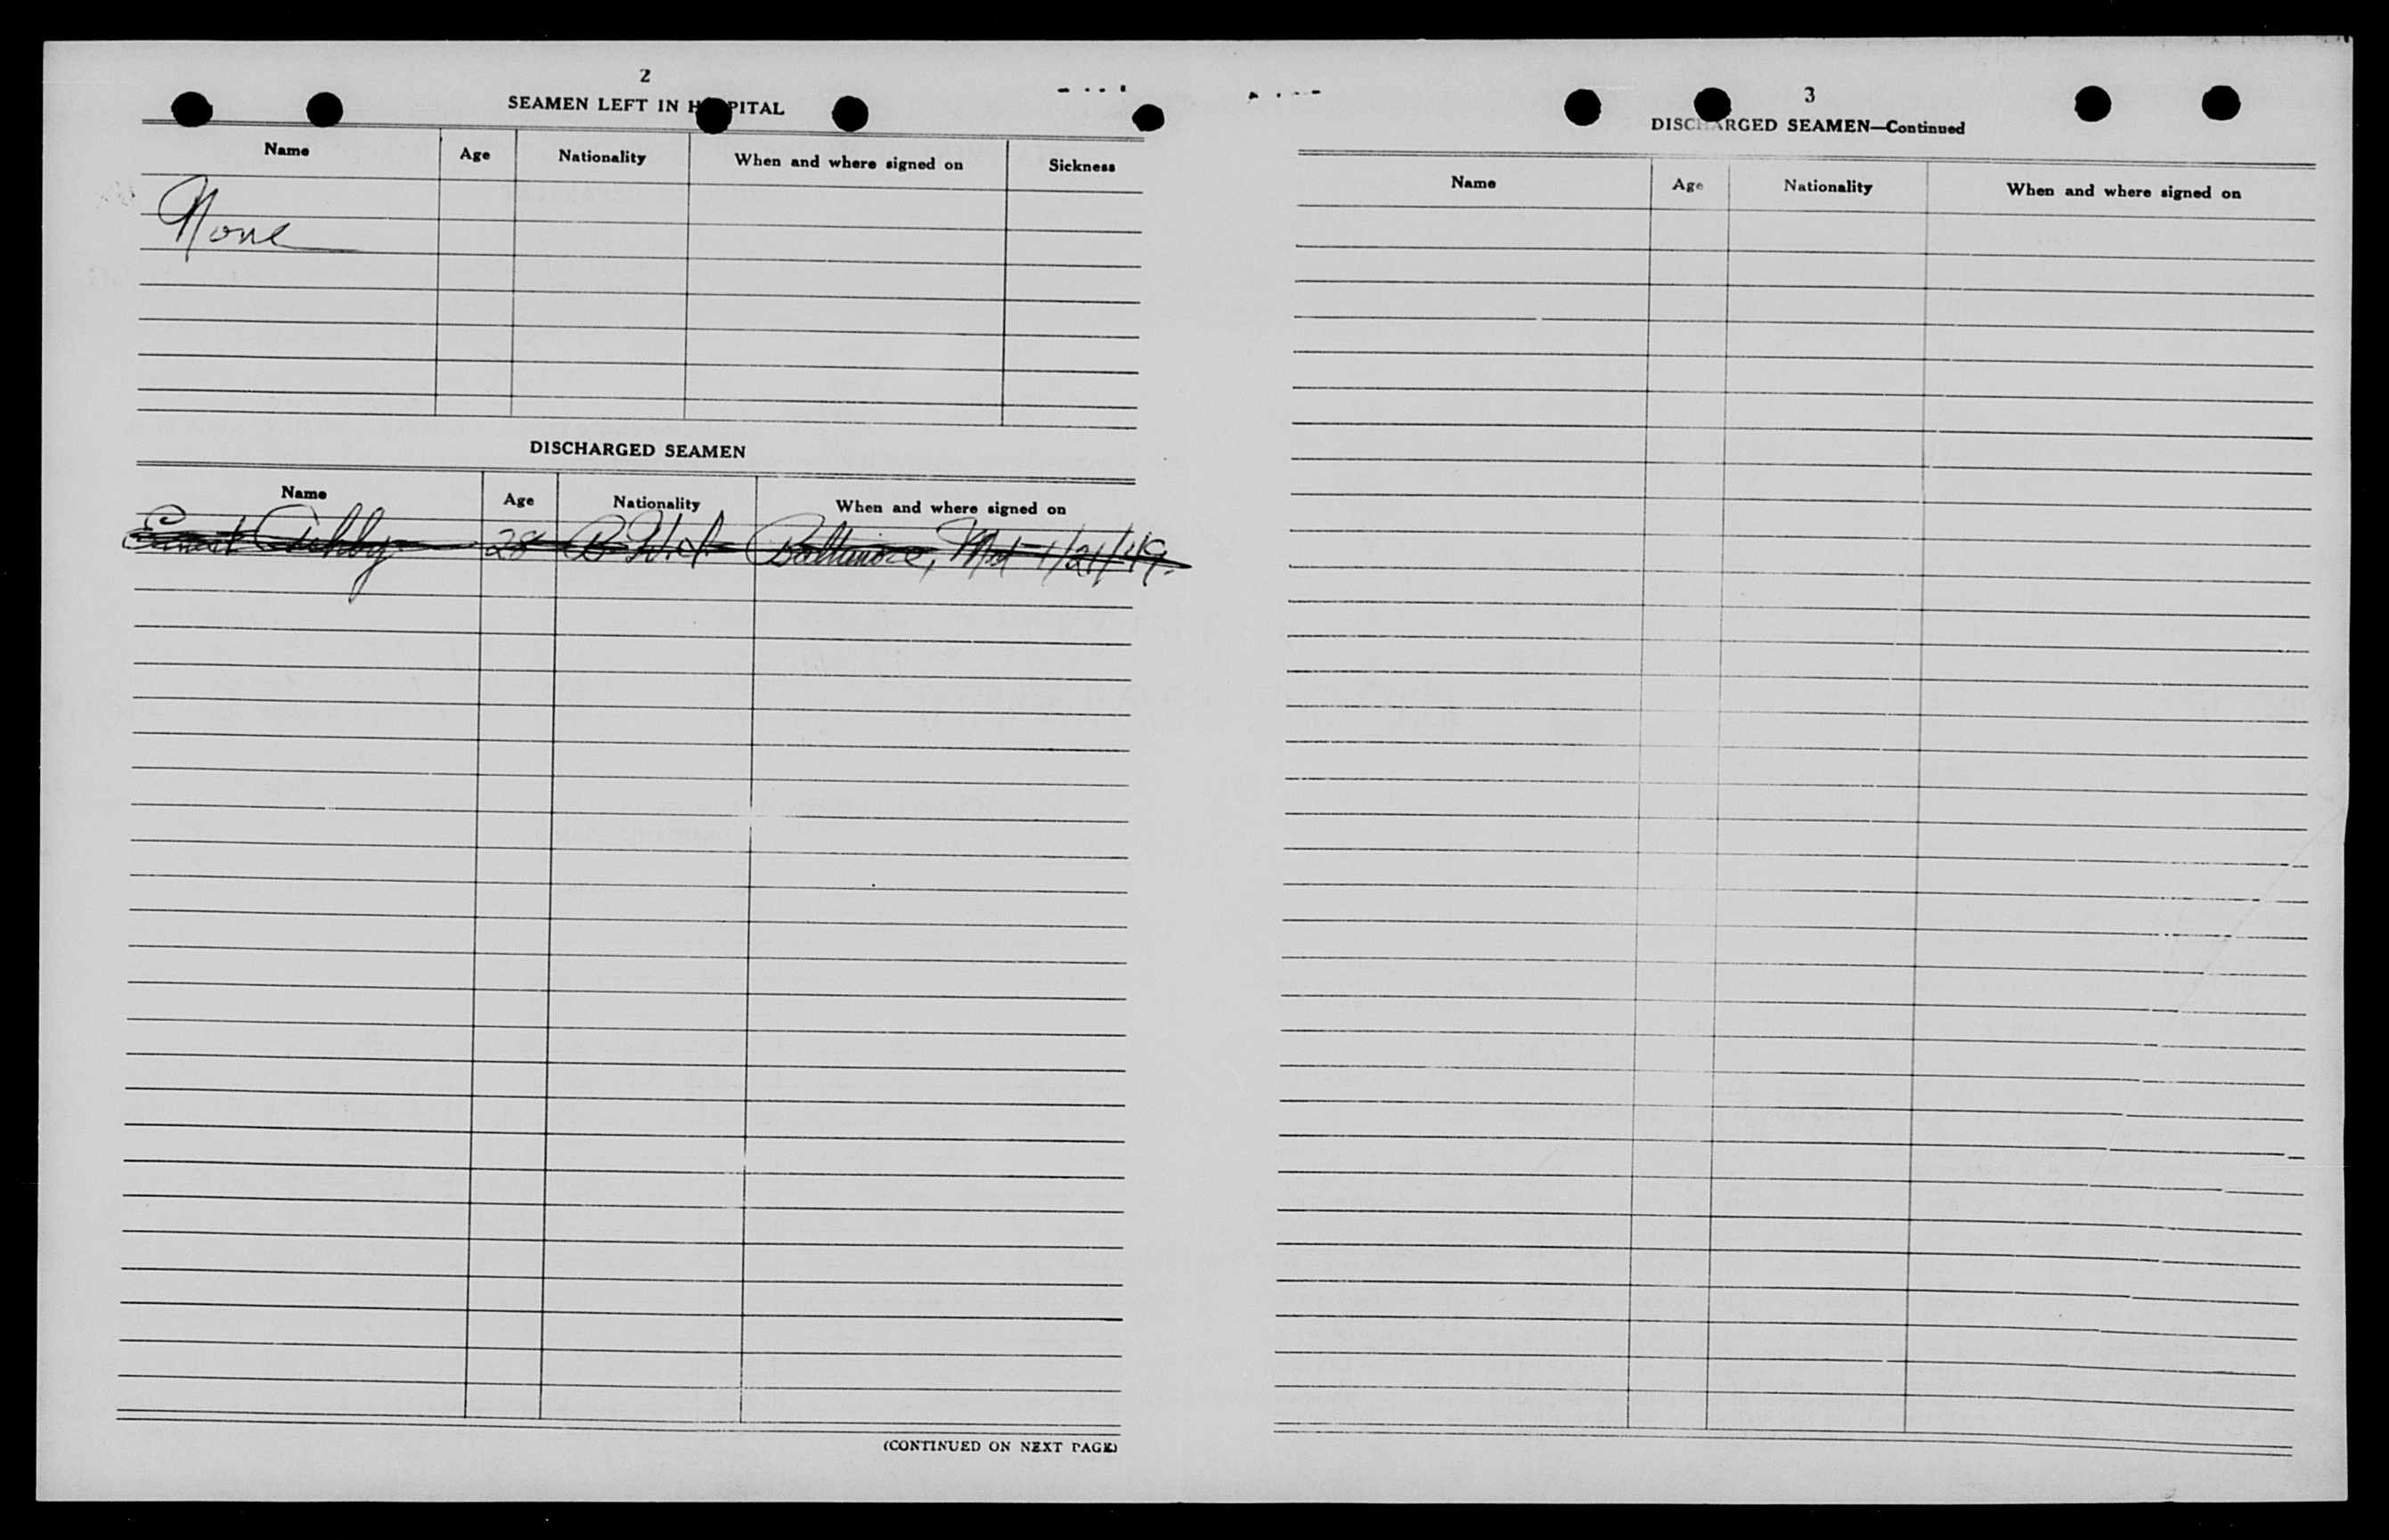 2
SEAMEN LEFT IN HOSPITAL
Name Age Nationality When and where signed on Sickness
None
DISCHARGED SEAMEN
Name Age Nationality When and where signed on
Ernest Ashby 28 B.W.I. Baltimore, Md 1/21/49.
(CONTINUED ON NEXT PAGE)
3
DISCHARGED SEAMEN—Continued
Name Age Nationality When and where signed on